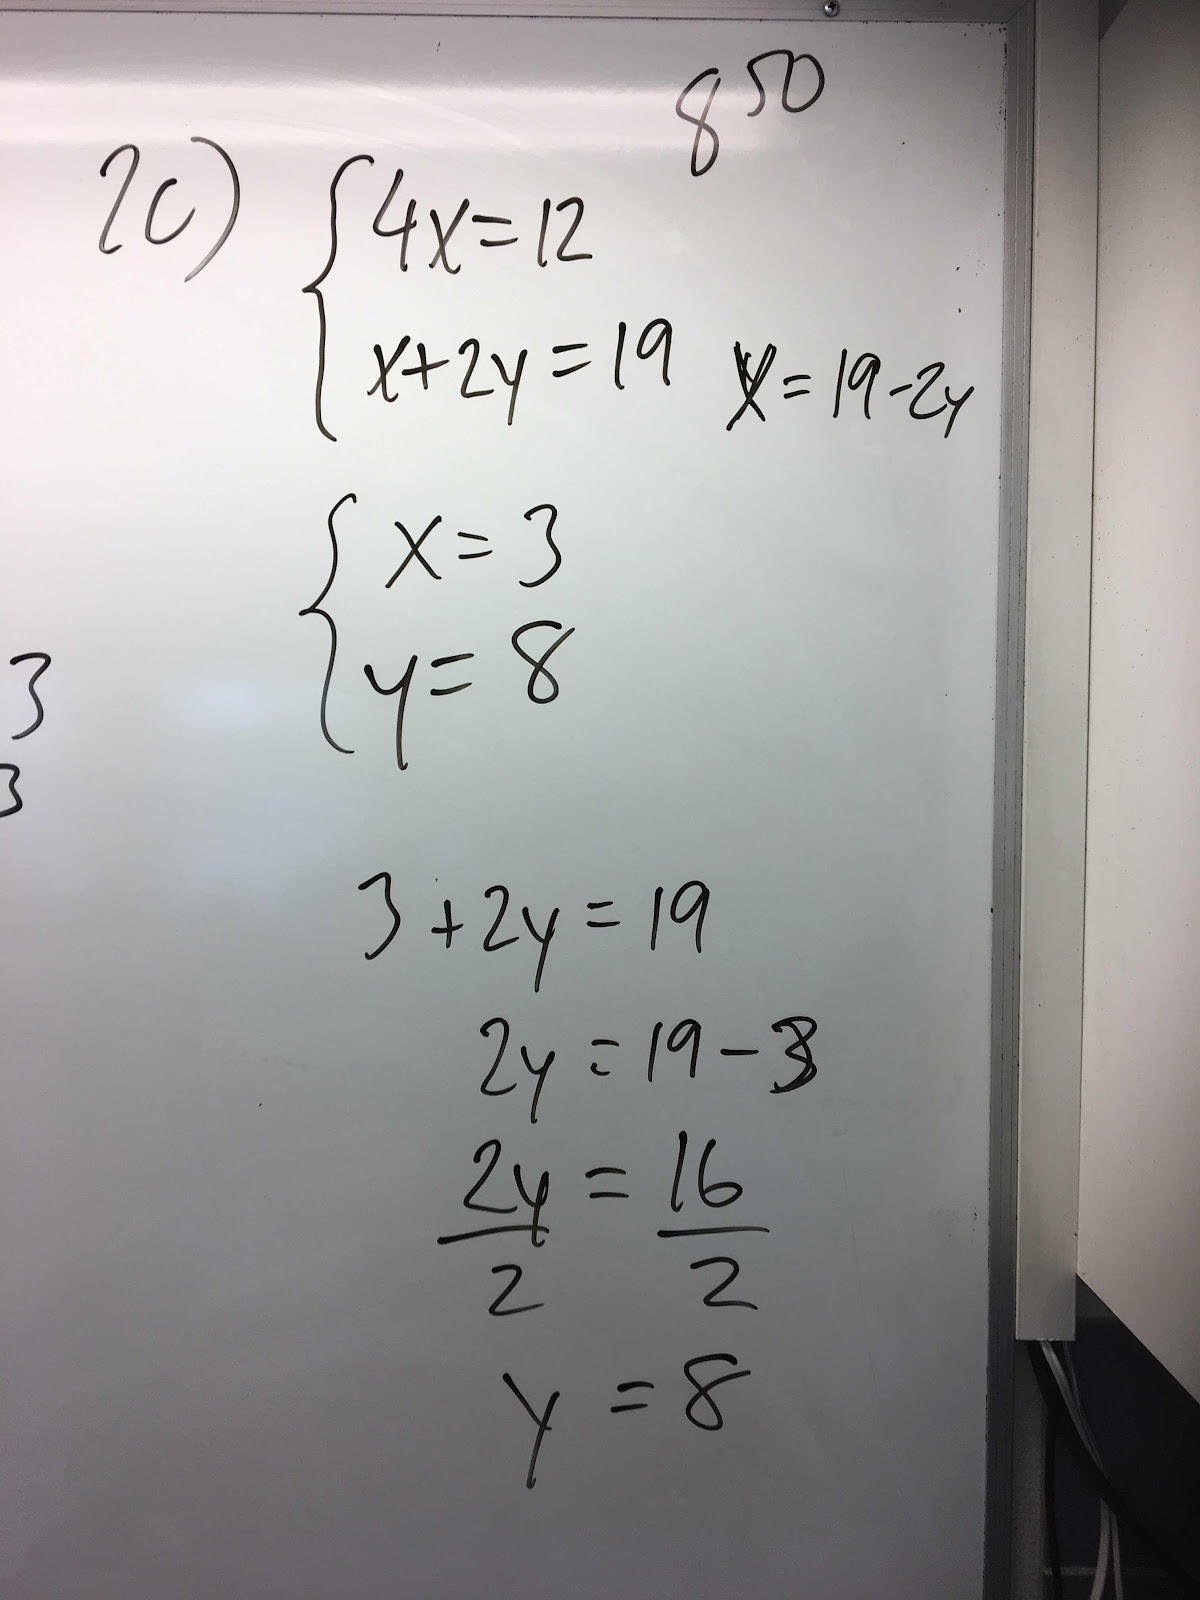 8 50
2c)
4x = 12
x + 2y = 19   x = 19 - 2y
x = 3
y = 8
3
3
3 + 2y = 19
2y = 19 - 3
2y/2 = 16/2
y = 8